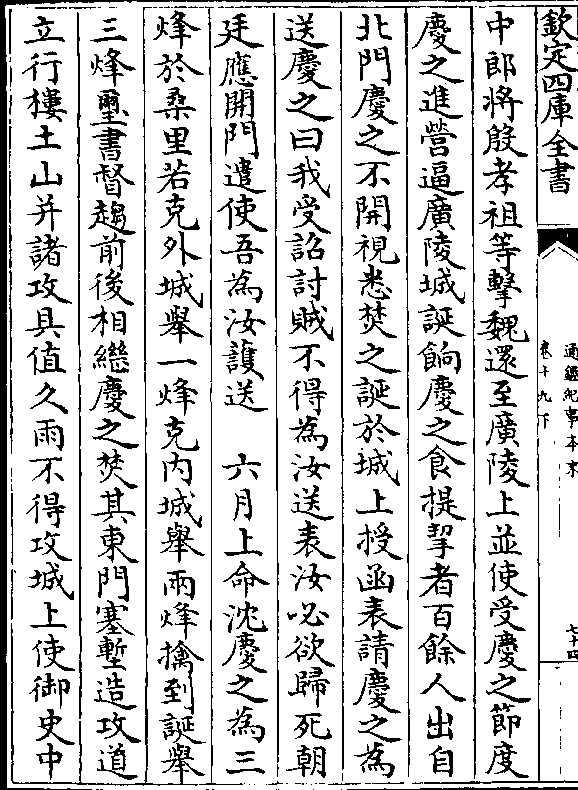 欽定四庫全書
通鑑紀事本末
卷十九下
七十四
中郎將殷孝祖等擊魏還至廣陵上並使受慶之節度
慶之進營逼廣陵城誕餉慶之食提挈者百餘人出自
北門慶之不開視悉焚之誕於城上授函表請慶之為
送慶之曰我受詔討賊不得為汝送表汝必欲歸死朝
廷應開門遣使吾為汝護送　六月上命沈慶之為三
烽於桑里若克外城舉一烽克内城舉兩烽擒到誕舉
三烽璽書督趨前後相繼慶之焚其東門塞塹造攻道
立行樓土山并諸攻具值久雨不得攻城上使御史中